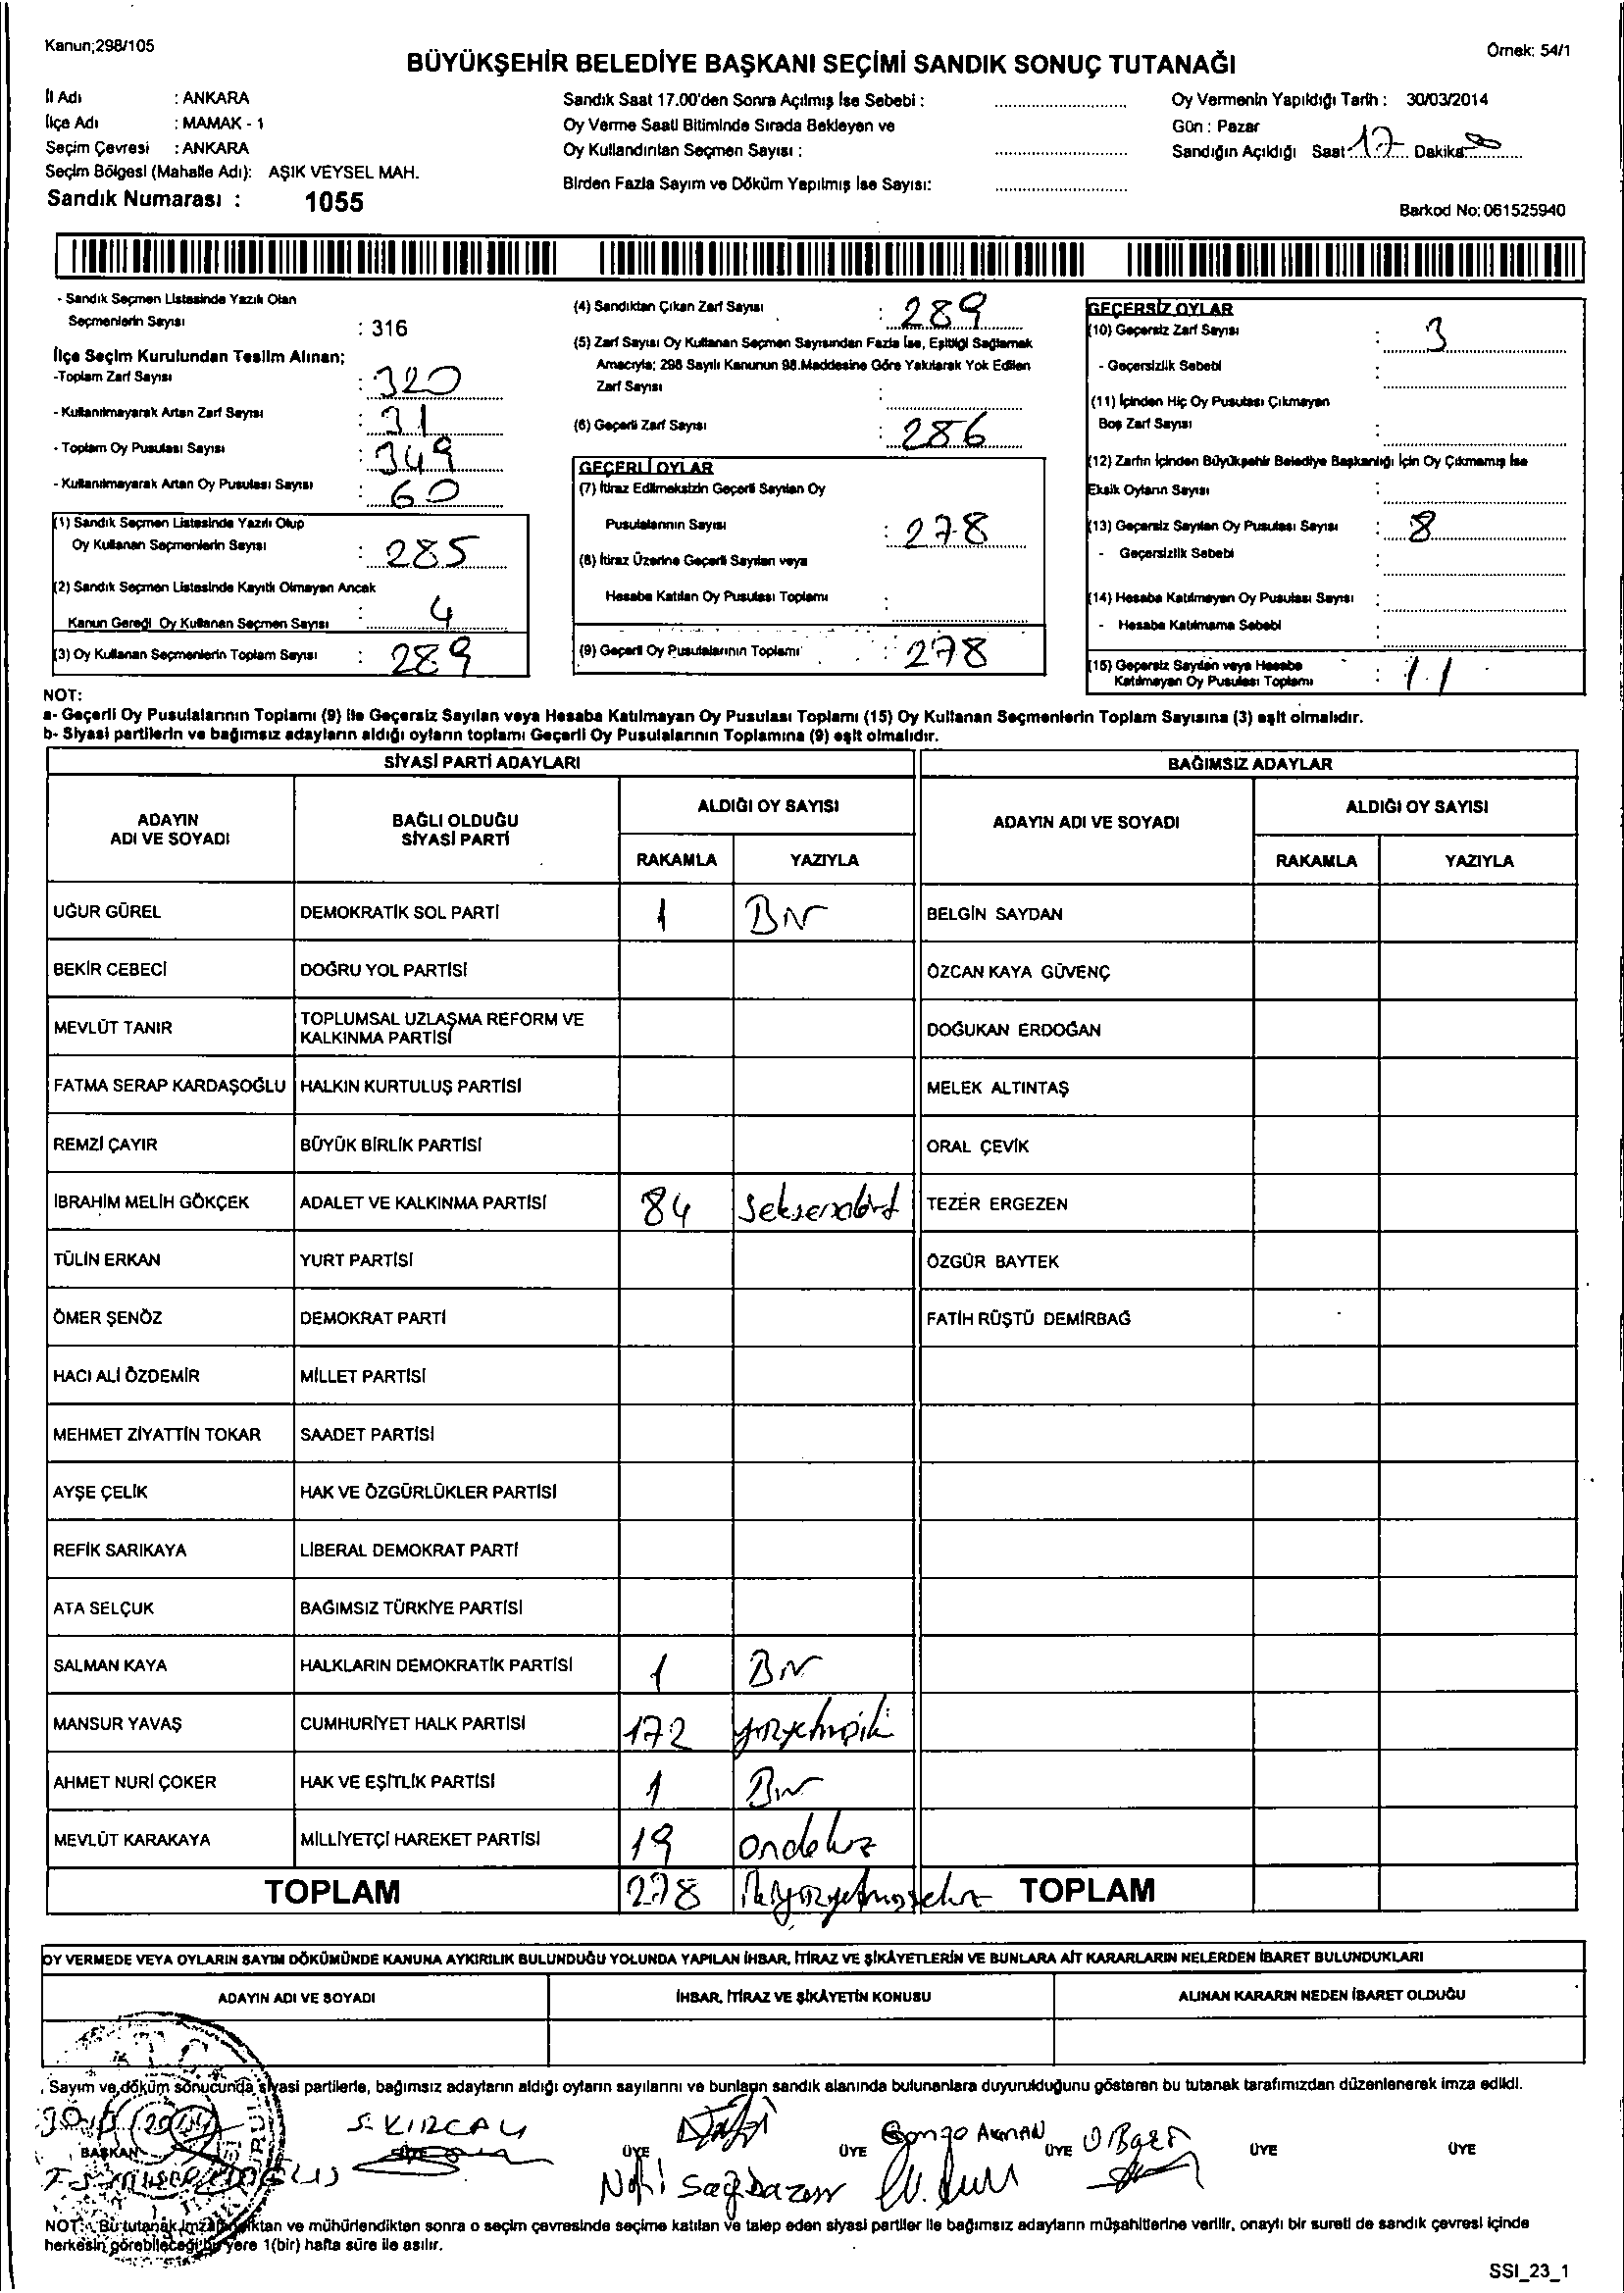 Kanun;298/105
Örnek: 54/1
BÜYÜKŞEHİR BELEDİYE BAŞKANI SEÇİMİ SANDIK SONUÇ TUTANAĞI
İl Adı : ANKARA
İlçe Adı : MAMAK - 1
Seçim Çevresi : ANKARA
Seçim Bölgesi (Mahalle Adı): AŞIK VEYSEL MAH.
Sandık Numarası : 1055
Sandık Saat 17.00'den Sonra Açılmış İse Sebebi :
Oy Verme Saati Bitiminde Sırada Bekleyen ve
Oy Kullandırılan Seçmen Sayısı :
Birden Fazla Sayım ve Döküm Yapılmış İse Sayısı:
Oy Vermenin Yapıldığı Tarih : 30/03/2014
Gün : Pazar
Sandığın Açıldığı Saat 17 Dakika
Barkod No: 061525940
- Sandık Seçmen Listesinde Yazılı Olan
Seçmenlerin Sayısı : 316
İlçe Seçim Kurulundan Teslim Alınan;
-Toplam Zarf Sayısı : 320
- Kullanılmayarak Artan Zarf Sayısı : 31
- Toplam Oy Pusulası Sayısı : 349
- Kullanılmayarak Artan Oy Pusulası Sayısı : 60
(1) Sandık Seçmen Listesinde Yazılı Olup
Oy Kullanan Seçmenlerin Sayısı : 285
(2) Sandık Seçmen Listesinde Kayıtlı Olmayan Ancak
Kanun Gereği Oy Kullanan Seçmen Sayısı : 4
(3) Oy Kullanan Seçmenlerin Toplam Sayısı : 289
(4) Sandıktan Çıkan Zarf Sayısı : 289
(5) Zarf Sayısı Oy Kullanan Seçmen Sayısından Fazla İse, Eşitliği Sağlamak
Amacıyla; 298 Sayılı Kanunun 98.Maddesine Göre Yakılarak Yok Edilen
Zarf Sayısı :
(6) Geçerli Zarf Sayısı : 286
GEÇERLİ OYLAR
(7) İtiraz Edilmeksizin Geçerli Sayılan Oy
Pusulalarının Sayısı : 278
(8) İtiraz Üzerine Geçerli Sayılan veya
Hesaba Katılan Oy Pusulası Toplamı :
(9) Geçerli Oy Pusulalarının Toplamı : 278
GEÇERSİZ OYLAR
(10) Geçersiz Zarf Sayısı : 3
- Geçersizlik Sebebi :
(11) İçinden Hiç Oy Pusulası Çıkmayan
Boş Zarf Sayısı :
(12) Zarfın İçinden Büyükşehir Belediye Başkanlığı İçin Oy Çıkmamış İse
Eksik Oyların Sayısı :
(13) Geçersiz Sayılan Oy Pusulası Sayısı : 8
- Geçersizlik Sebebi :
(14) Hesaba Katılmayan Oy Pusulası Sayısı :
- Hesaba Katılmama Sebebi :
(15) Geçersiz Sayılan veya Hesaba
Katılmayan Oy Pusulası Toplamı : 11
NOT:
a- Geçerli Oy Pusulalarının Toplamı (9) ile Geçersiz Sayılan veya Hesaba Katılmayan Oy Pusulası Toplamı (15) Oy Kullanan Seçmenlerin Toplam Sayısına (3) eşit olmalıdır.
b- Siyasi partilerin ve bağımsız adayların aldığı oyların toplamı Geçerli Oy Pusulalarının Toplamına (9) eşit olmalıdır.
SİYASİ PARTİ ADAYLARI
BAĞIMSIZ ADAYLAR
ADAYIN
ADI VE SOYADI
BAĞLI OLDUĞU
SİYASİ PARTİ
ALDIĞI OY SAYISI
RAKAMLA YAZIYLA
ADAYIN ADI VE SOYADI
ALDIĞI OY SAYISI
RAKAMLA YAZIYLA
UĞUR GÜREL DEMOKRATİK SOL PARTİ 1 Bir BELGİN SAYDAN
BEKİR CEBECİ DOĞRU YOL PARTİSİ ÖZCAN KAYA GÜVENÇ
MEVLÜT TANIR TOPLUMSAL UZLAŞMA REFORM VE
KALKINMA PARTİSİ DOĞUKAN ERDOĞAN
FATMA SERAP KARDAŞOĞLU HALKIN KURTULUŞ PARTİSİ MELEK ALTINTAŞ
REMZİ ÇAYIR BÜYÜK BİRLİK PARTİSİ ORAL ÇEVİK
İBRAHİM MELİH GÖKÇEK ADALET VE KALKINMA PARTİSİ 84 seksendört TEZER ERGEZEN
TÜLİN ERKAN YURT PARTİSİ ÖZGÜR BAYTEK
ÖMER ŞENÖZ DEMOKRAT PARTİ FATİH RÜŞTÜ DEMİRBAĞ
HACI ALİ ÖZDEMİR MİLLET PARTİSİ
MEHMET ZİYATTİN TOKAR SAADET PARTİSİ
AYŞE ÇELİK HAK VE ÖZGÜRLÜKLER PARTİSİ
REFİK SARIKAYA LİBERAL DEMOKRAT PARTİ
ATA SELÇUK BAĞIMSIZ TÜRKİYE PARTİSİ
SALMAN KAYA HALKLARIN DEMOKRATİK PARTİSİ 1 Bir
MANSUR YAVAŞ CUMHURİYET HALK PARTİSİ 172 yüzyetmişiki
AHMET NURİ ÇOKER HAK VE EŞİTLİK PARTİSİ 1 Bir
MEVLÜT KARAKAYA MİLLİYETÇİ HAREKET PARTİSİ 19 ondokuz
TOPLAM 278 ikiyüzyetmişsekiz TOPLAM
OY VERMEDE VEYA OYLARIN SAYIM DÖKÜMÜNDE KANUNA AYKIRILIK BULUNDUĞU YOLUNDA YAPILAN İHBAR, İTİRAZ VE ŞİKÂYETLERİN VE BUNLARA AİT KARARLARIN NELERDEN İBARET BULUNDUKLARI
ADAYIN ADI VE SOYADI İHBAR, İTİRAZ VE ŞİKÂYETİN KONUSU ALINAN KARARIN NEDEN İBARET OLDUĞU
Sayım ve döküm sonucunda siyasi partilerle, bağımsız adayların aldığı oyların sayılarını ve bunların sandık alanında bulunanlara duyurulduğunu gösteren bu tutanak tarafımızdan düzenlenerek imza edildi.
S. KIRCALI
BAŞKAN ÜYE ÜYE ÜYE ÜYE ÜYE
NOT: Bu tutanak imzalandıktan ve mühürlendikten sonra o seçim çevresinde seçime katılan ve talep eden siyasi partiler ile bağımsız adayların müşahitlerine verilir, onaylı bir sureti de sandık çevresi içinde
herkesin görebileceği bir yere 1(bir) hafta süre ile asılır.
SSI_23_1